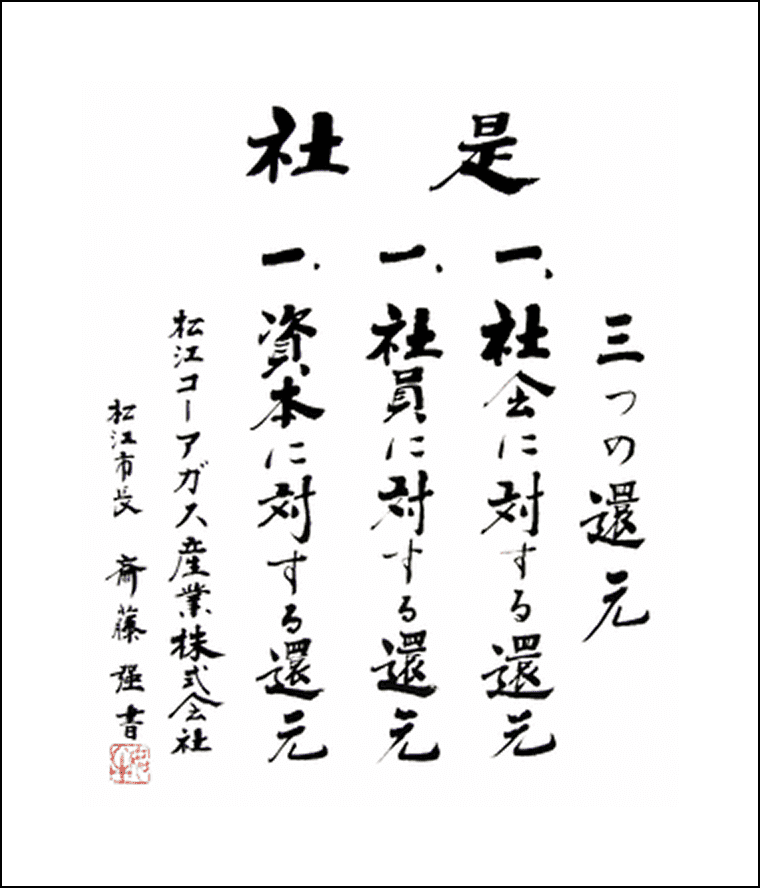 社是
三つの還元
一、社会に対する還元
一、社員に対する還元
一、資本に対する還元
松江コーアガス産業株式会社
松江市長 斎藤強書